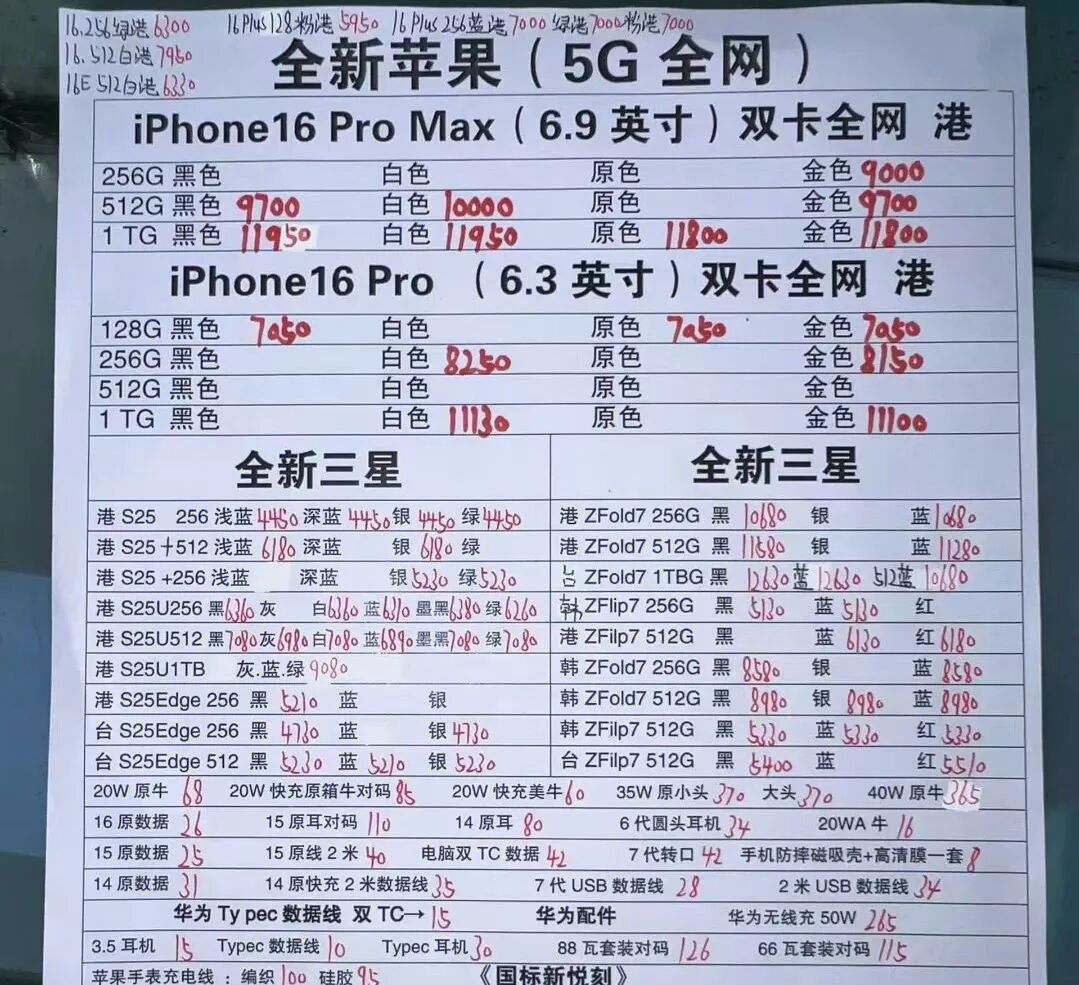 16.256绿港6300 16Plus128粉港5950 16Plus256蓝港7000 绿港7000粉港7000
16.512白港7950
16E 512白港6330
全新苹果（5G 全网）
iPhone16 Pro Max（6.9 英寸）双卡全网 港
256G 黑色 白色 原色 金色 9000
512G 黑色 9700 白色 10000 原色 金色 9700
1 TG 黑色 11950 白色 11950 原色 11800 金色 11800
iPhone16 Pro （6.3 英寸）双卡全网 港
128G 黑色 7050 白色 原色 7050 金色 7050
256G 黑色 白色 8250 原色 金色 8150
512G 黑色 白色 原色 金色
1 TG 黑色 白色 11130 原色 金色 11100
全新三星 全新三星
港 S25 256 浅蓝 4450 深蓝 4450 银 4450 绿 4450 港 ZFold7 256G 黑 10680 银 蓝 10680
港 S25+512 浅蓝 6180 深蓝 银 6180 绿 港 ZFold7 512G 黑 11580 银 蓝 11280
港 S25 +256 浅蓝 深蓝 银 5230 绿 5230 台 ZFold7 1TBG 黑 12630 蓝 12630 512蓝 10680
港 S25U256 黑 6360 灰 白 6360 蓝 6310 墨黑 6380 绿 6260 韩 ZFlip7 256G 黑 5130 蓝 5130 红
港 S25U512 黑 7080 灰 6980 白 7080 蓝 6890 墨黑 7080 绿 7080 港 ZFilp7 512G 黑 蓝 6130 红 6180
港 S25U1TB 灰.蓝.绿 9080 韩 ZFold7 256G 黑 8580 银 蓝 8580
港 S25Edge 256 黑 5210 蓝 银 韩 ZFold7 512G 黑 8980 银 8980 蓝 8980
台 S25Edge 256 黑 4730 蓝 银 4730 韩 ZFilp7 512G 黑 5330 蓝 5330 红 5330
台 S25Edge 512 黑 5230 蓝 5210 银 5230 台 ZFilp7 512G 黑 5400 蓝 红 5510
20W 原牛 68 20W 快充原箱牛对码 85 20W 快充美牛 60 35W 原小头 370 大头 370 40W 原牛 365
16 原数据 26 15 原耳对码 110 14 原耳 80 6 代圆头耳机 34 20WA 牛 16
15 原数据 25 15 原线 2 米 40 电脑双 TC 数据 42 7 代转口 42 手机防摔磁吸壳+高清膜一套 8
14 原数据 31 14 原快充 2 米数据线 35 7 代 USB 数据线 28 2 米 USB 数据线 34
华为 Ty pec 数据线 双 TC→ 15 华为配件 华为无线充 50W 265
3.5 耳机 15 Typec 数据线 10 Typec 耳机 30 88 瓦套装对码 126 66 瓦套装对码 115
苹果手表充电线 : 编织 100 硅胶 95 《国标新悦刻》